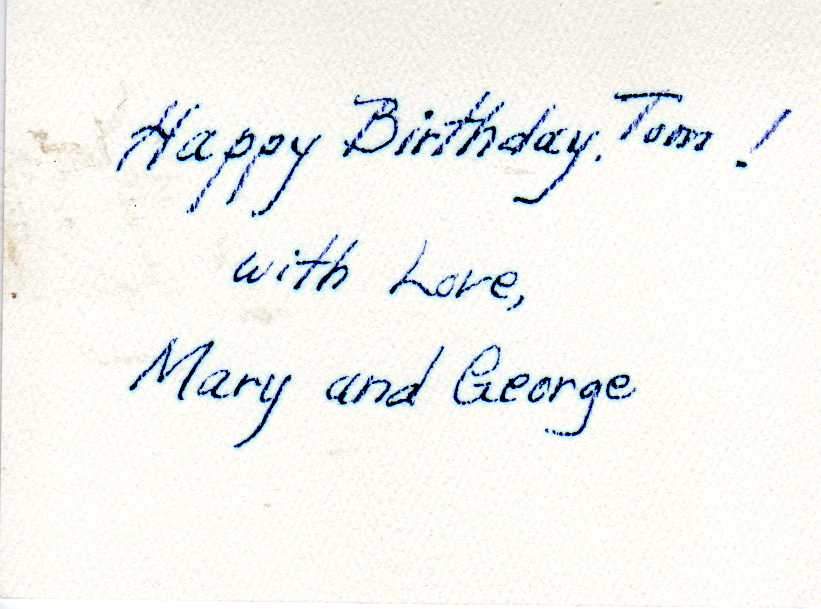 Happy Birthday, Tom!
with Love,
Mary and George